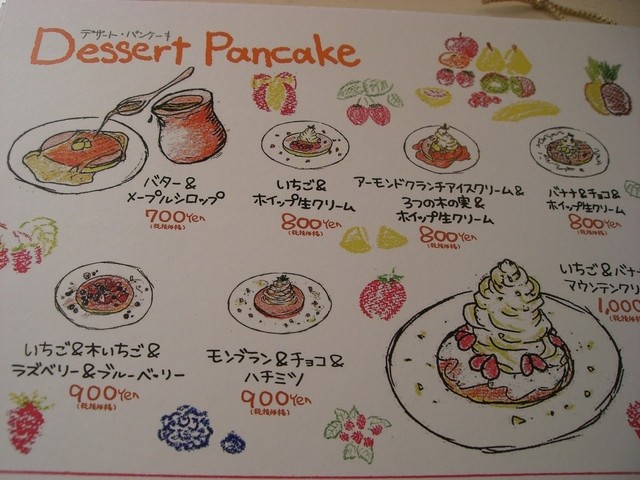 デザート・パンケーキ
Dessert Pancake
バター&
メープルシロップ
700Yen
(税抜価格)
いちご&
ホイップ生クリーム
800Yen
(税抜価格)
アーモンドクランチアイスクリーム&
3つの木の実&
ホイップ生クリーム
800Yen
(税抜価格)
バナナ&チョコ&
ホイップ生クリーム
800Yen
(税抜価格)
いちご&木いちご&
ラズベリー&ブルーベリー
900Yen
(税抜価格)
モンブラン&チョコ&
ハチミツ
900Yen
(税抜価格)
いちご&バナ
マウンテンクリ
1,000